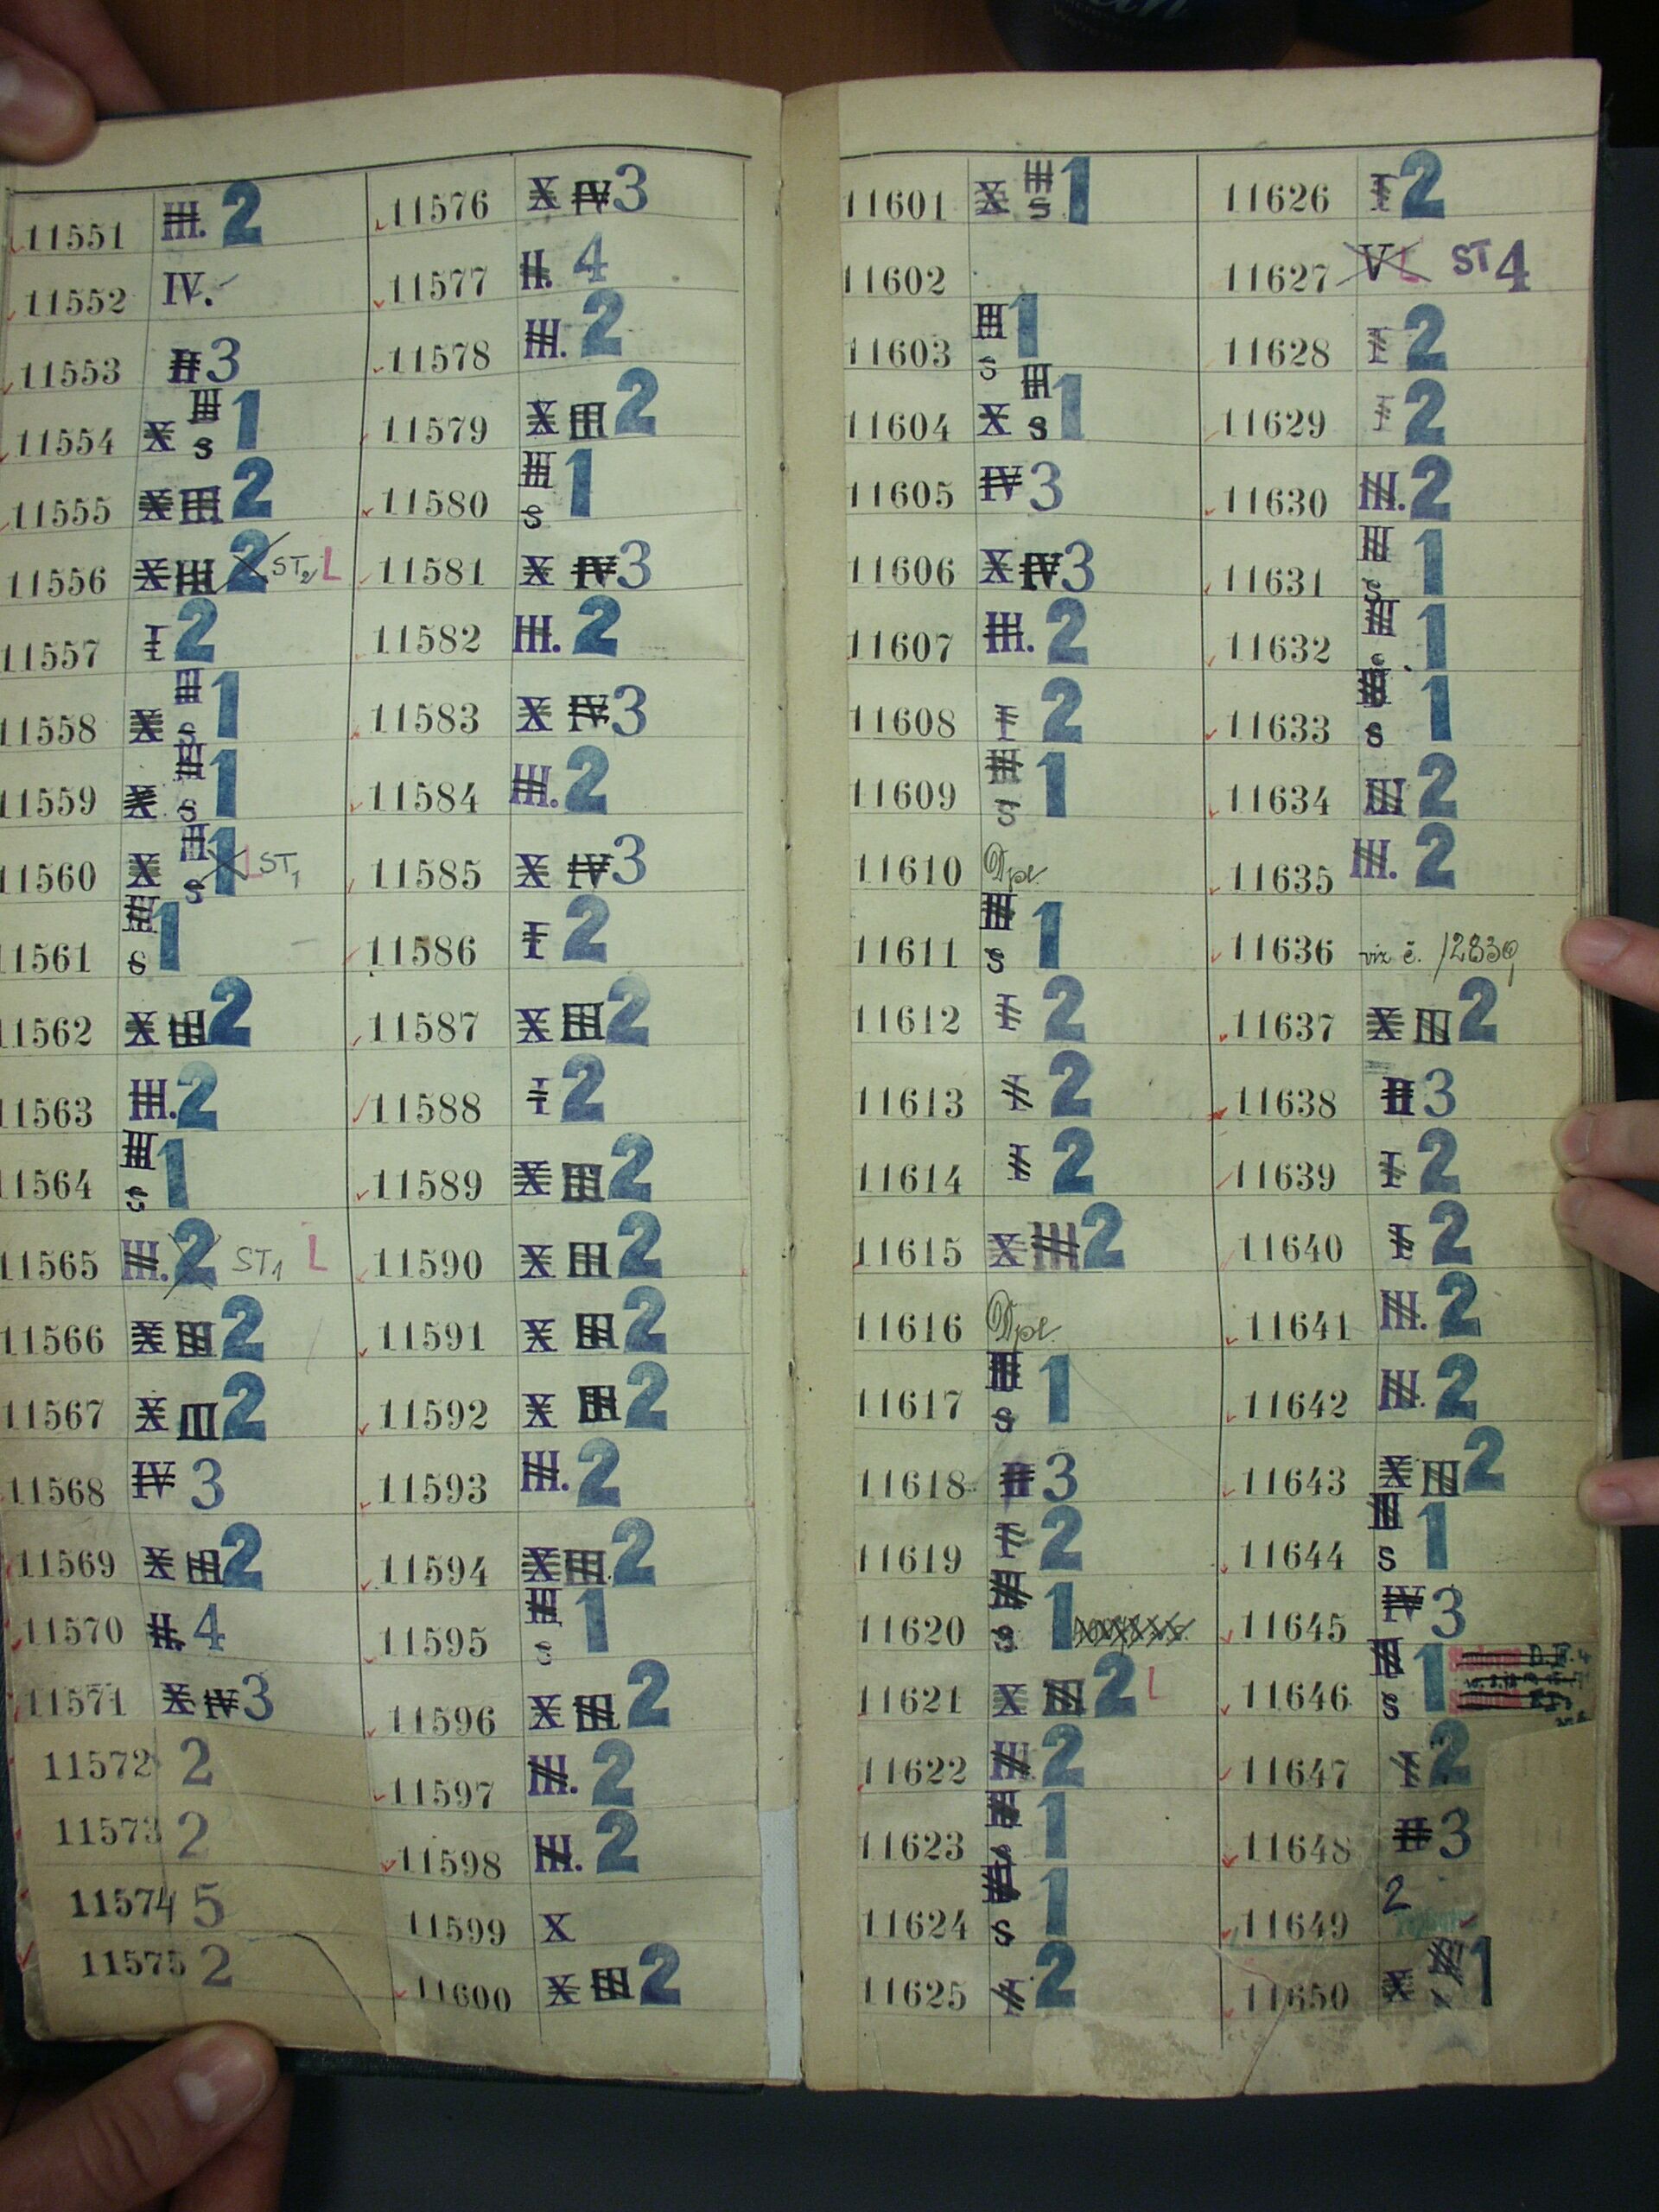 11551 III. 2
11552 IV.
11553 II 3
11554 X III s 1
11555 X III 2
11556 X III 2 ST2 L
11557 I 2
11558 X III s 1
11559 X III s 1
11560 X III s 1 L ST1
11561 III s 1
11562 X III 2
11563 III. 2
11564 III s 1
11565 III. 2 ST1 L
11566 X III 2
11567 X III 2
11568 IV 3
11569 X III 2
11570 II. 4
11571 X IV 3
11572 2
11573 2
11574 5
11575 2
11576 X IV 3
11577 II. 4
11578 III. 2
11579 X III 2
11580 III s 1
11581 X IV 3
11582 III. 2
11583 X IV 3
11584 III. 2
11585 X IV 3
11586 I 2
11587 X III 2
11588 I 2
11589 X III 2
11590 X III 2
11591 X III 2
11592 X III 2
11593 III. 2
11594 X III 2
11595 III s 1
11596 X III 2
11597 III. 2
11598 III. 2
11599 X
11600 X III 2
11601 X III s 1
11602
11603 III s 1
11604 X III s 1
11605 IV 3
11606 X IV 3
11607 III. 2
11608 I 2
11609 III s 1
11610 Dpl.
11611 III s 1
11612 I 2
11613 I 2
11614 I 2
11615 X III 2
11616 Dpl.
11617 III s 1
11618 II 3
11619 I 2
11620 III s 1
11621 X III 2 L
11622 III 2
11623 III s 1
11624 III s 1
11625 I 2
11626 I 2
11627 V L ST 4
11628 I 2
11629 I 2
11630 III. 2
11631 III s 1
11632 III s 1
11633 III s 1
11634 III 2
11635 III. 2
11636 viz č. 12839
11637 X III 2
11638 II 3
11639 I 2
11640 I 2
11641 III. 2
11642 III. 2
11643 X III 2
11644 III s 1
11645 IV 3
11646 III s 1
11647 I 2
11648 II 3
11649 2
11650 X III 1